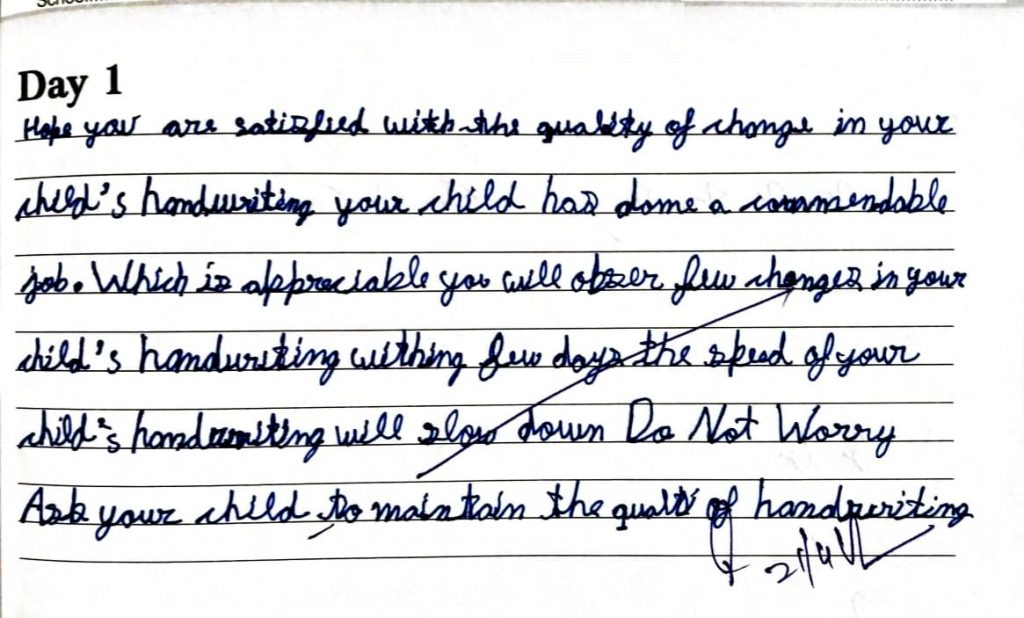 Day 1
Hope your are satisfied with the quality of change in your
child's handwriting your child has done a commendable
job. Which is appreciable you will obser few changes in your
child's handwriting withing few days the speed of your
child's handwriting will slow down Do Not Worry
Ask your child to maintain the qualti of handwriting